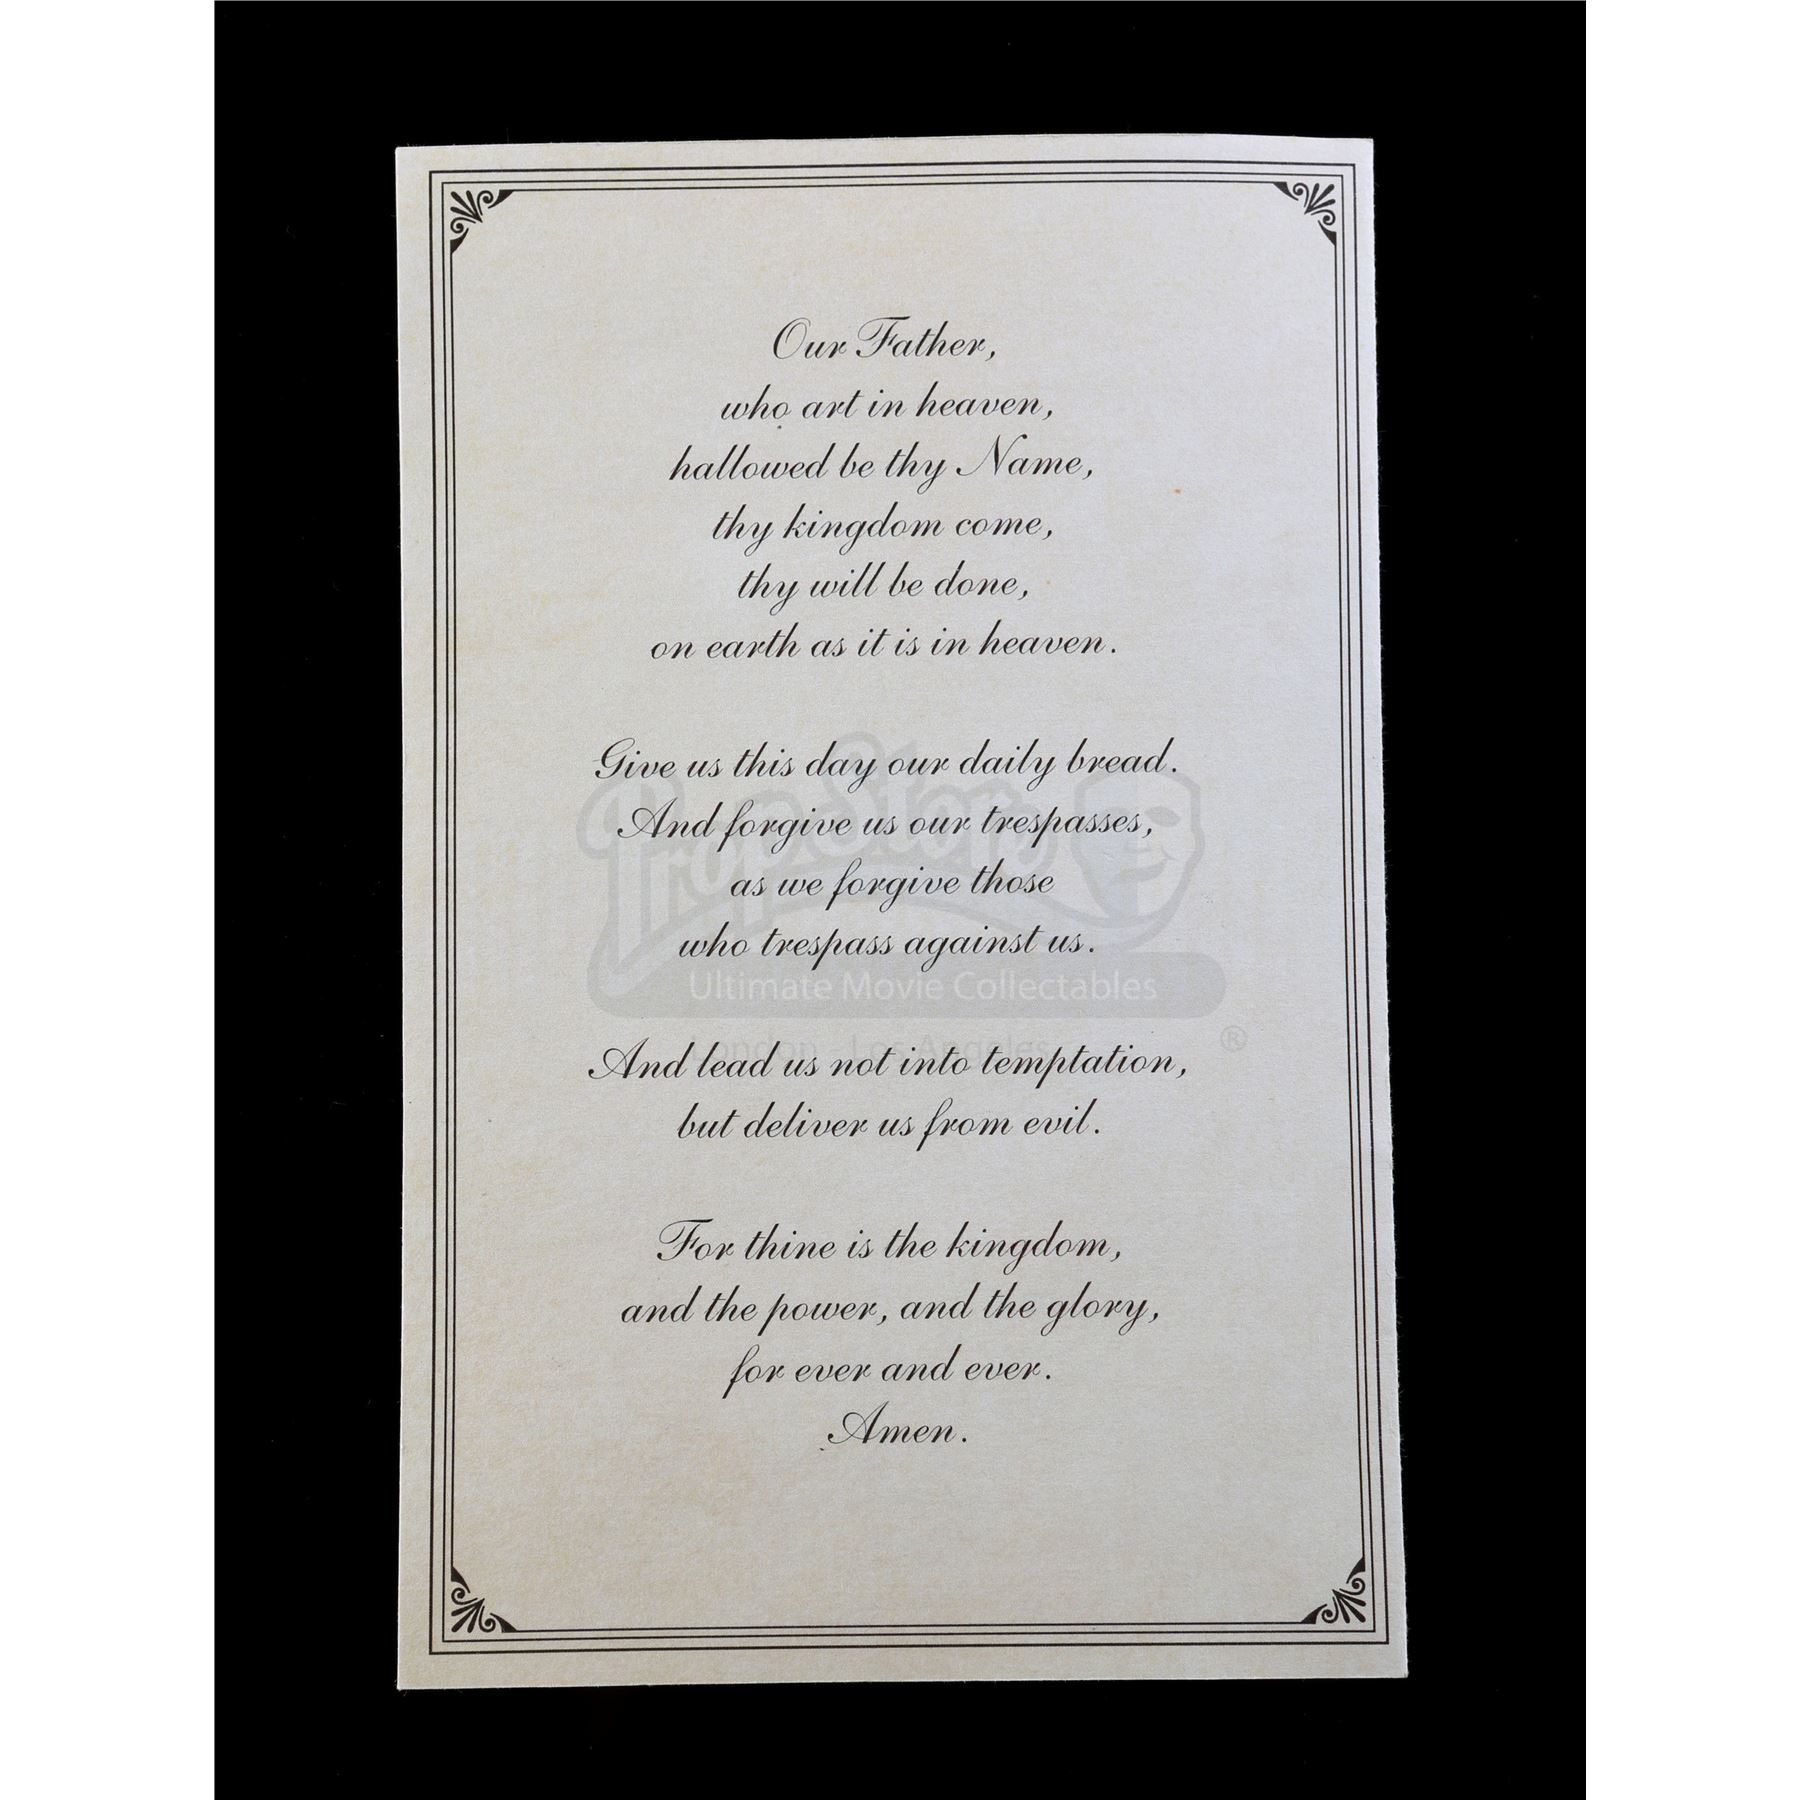 Our Father,
who art in heaven,
hallowed be thy Name,
thy kingdom come,
thy will be done,
on earth as it is in heaven.
Give us this day our daily bread.
And forgive us our trespasses,
as we forgive those
who trespass against us.
And lead us not into temptation,
but deliver us from evil.
For thine is the kingdom,
and the power, and the glory,
for ever and ever.
Amen.
PropStore
Ultimate Movie Collectables
London - Los Angeles
®